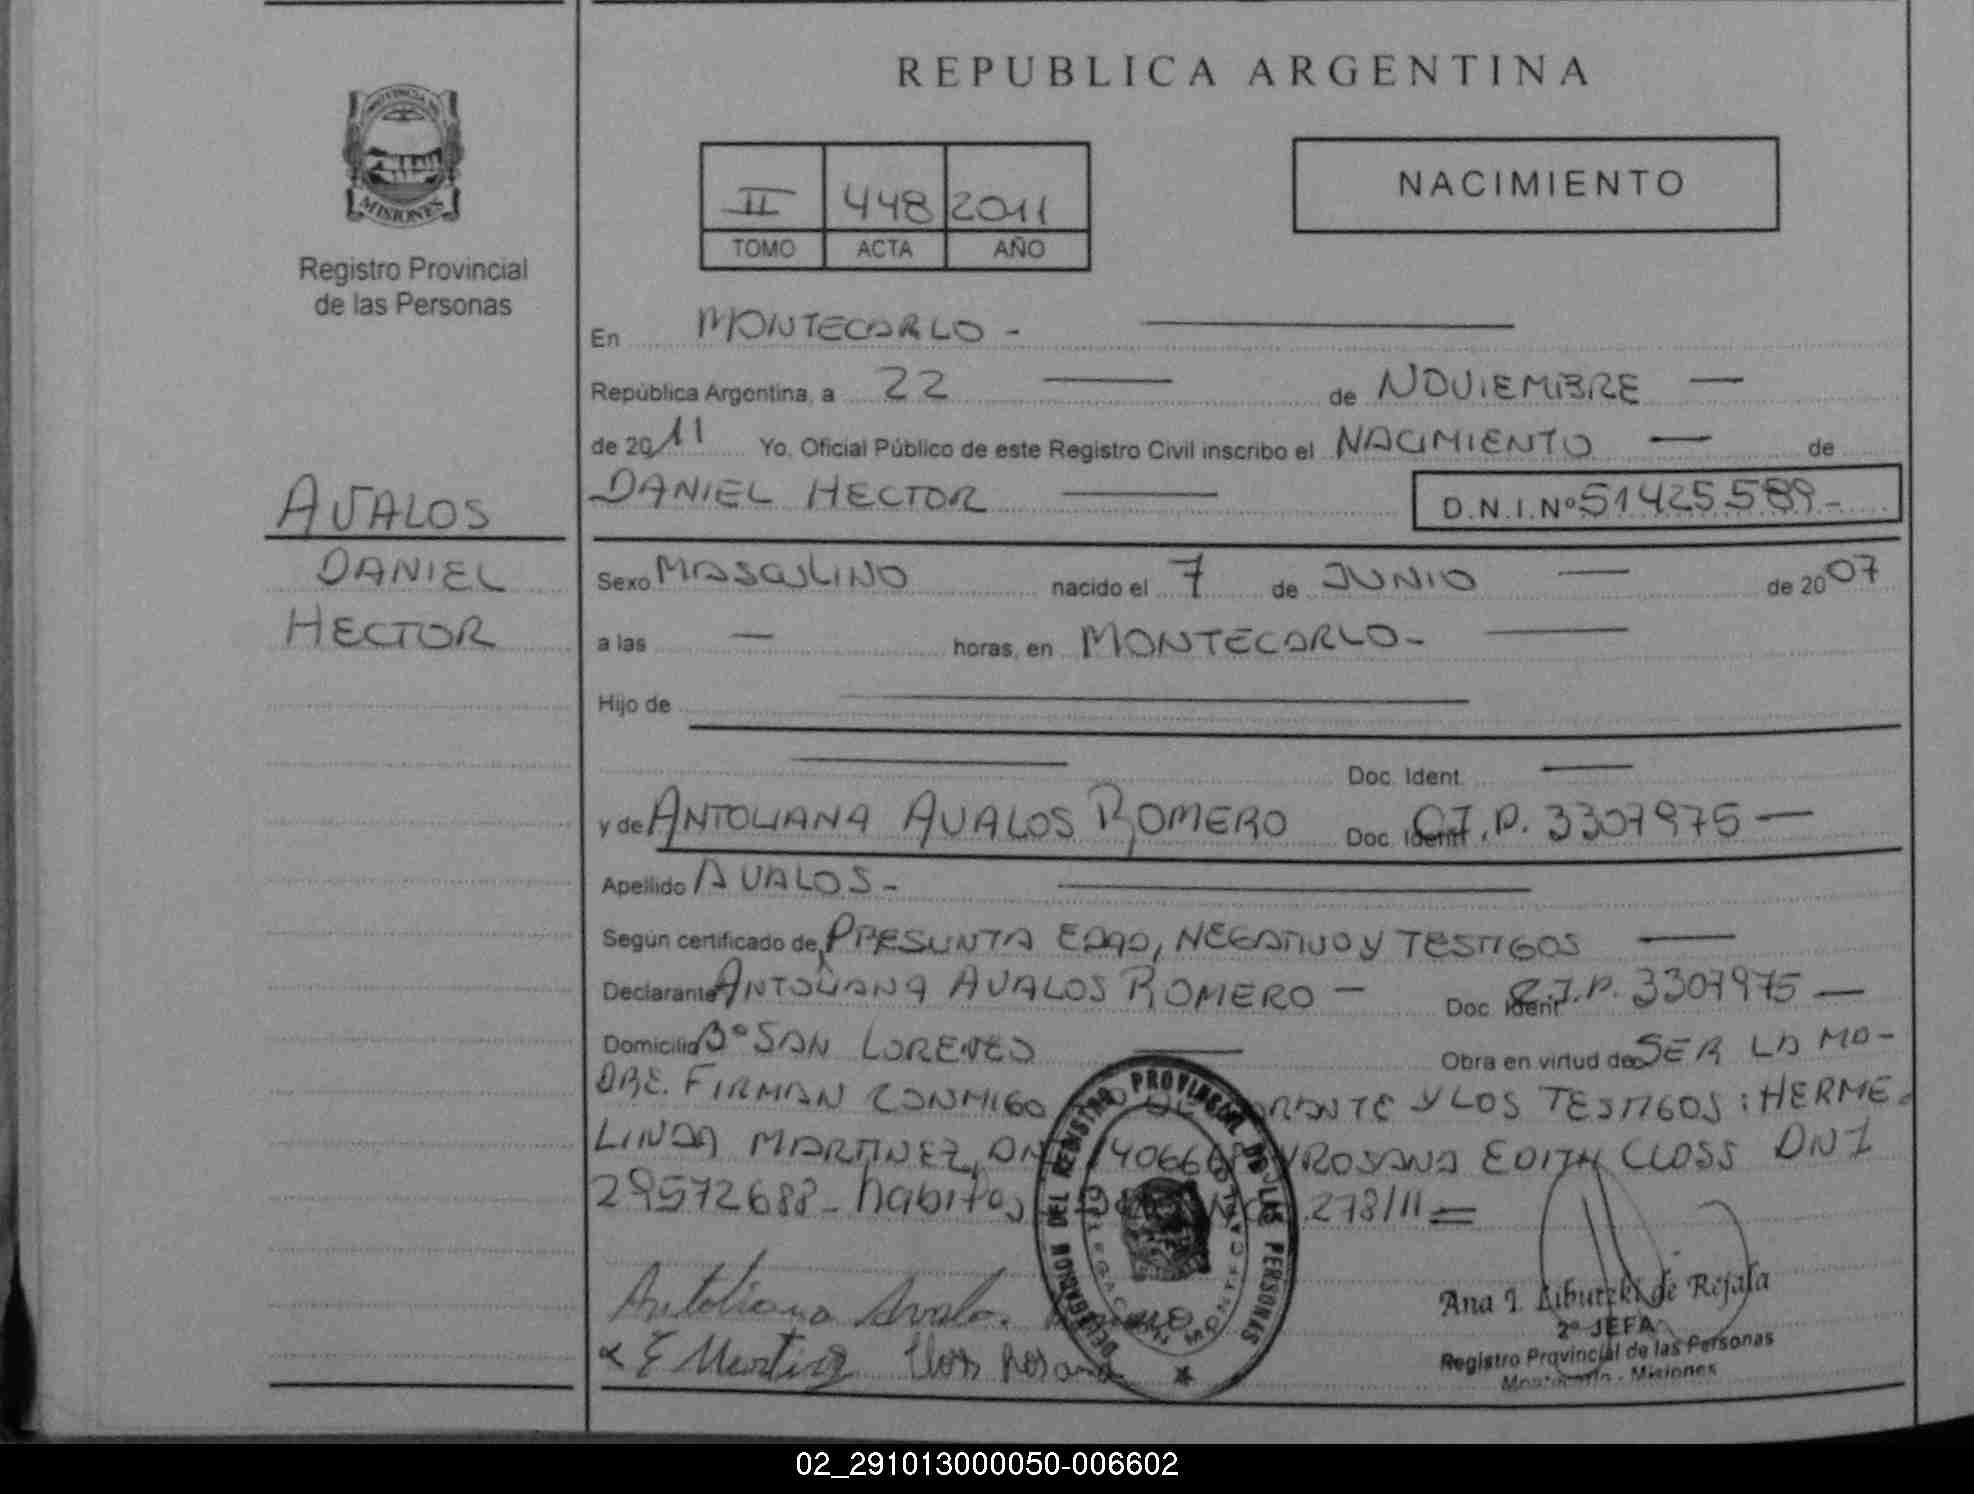 REPUBLICA ARGENTINA
PROVINCIA DE
MISIONES
Registro Provincial
de las Personas
II 448 2011
TOMO ACTA AÑO
NACIMIENTO
En MONTECARLO -
República Argentina, a 22 de NOVIEMBRE
de 2011 Yo, Oficial Público de este Registro Civil inscribo el NACIMIENTO de
AVALOS
DANIEL
HECTOR
DANIEL HECTOR D.N.I.Nº 51425589-
Sexo MASCULINO nacido el 7 de JUNIO de 2007
a las — horas, en MONTECARLO-
Hijo de
Doc. Ident. —
y de ANTOLIANA AVALOS ROMERO Doc. Ident. C.I.P. 3307975 —
Apellido AVALOS-
Según certificado de PRESUNTA EDAD, NEGATIVO Y TESTIGOS
Declarante ANTOLIANA AVALOS ROMERO — Doc. Ident. C.I.P. 3307975 —
Domicilio Bº SAN LORENZO Obra en virtud de SER LA MA-
DRE. FIRMAN CONMIGO Y LOS TESTIGOS: HERME-
LINDA MARTINEZ, ROSANA EDITH CLOSS DNI
29572688- 278/11 =
Antoliana Avalo
E Martinez Closs Rosana
DELEGACION DEL REGISTRO PROVINCIAL DE LAS PERSONAS
MONTECARLO
Ana I. de Rejala
2º JEFA
Registro Provincial de las Personas
Montecarlo - Misiones
02_291013000050-006602